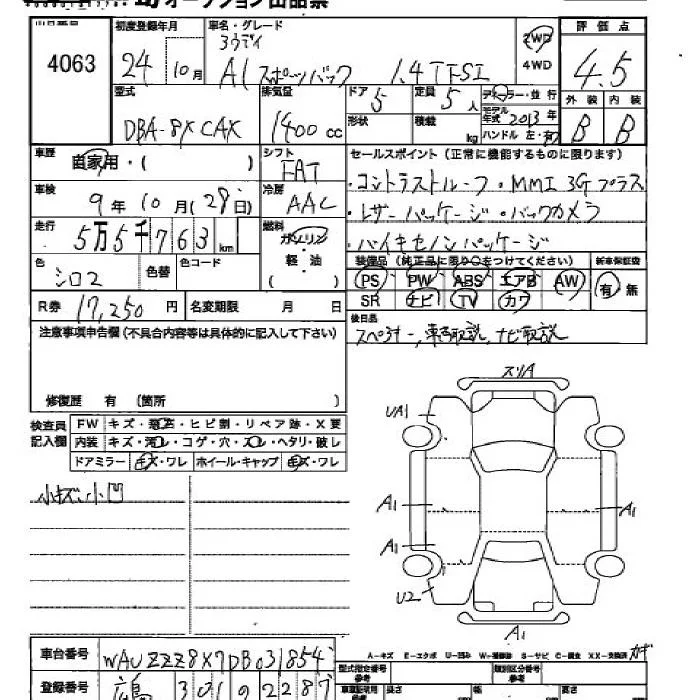 オークション出品票
4063
初度登録年月
24 10月
車名・グレード
アウディ
A1 スポーツバック 1.4 TFSI
2WD
4WD
評価点
4.5
外装 内装
B B
型式
DBA-8XCAX
排気量
1400 cc
ドア
5
定員
5人
形状
積載
kg
ディーラー・並行
モデル年式 2013年
ハンドル 左・右
車歴
自家用・( )
シフト
FAT
セールスポイント (正常に機能するものに限ります)
・コントラストルーフ・MMI 3Gプラス
・レザーパッケージ・バックカメラ
・バイキセノンパッケージ
車検
9年10月(28日)
冷房
AAC
走行
5万5千763km
燃料
ガソリン
軽・油
( )
色
シロ2
色替
色コード
装備品 (純正品に限り○をつけてください)
新車保証書
PS PW ABS エアB AW
有 無
SR ナビ TV カワ
R券 17,250円
名変期限 月 日
後日品
スペアキー, 車両取説, ナビ取説
注意事項申告欄 (不具合内容等は具体的に記入して下さい)
修復歴 有 (箇所 )
検査員記入欄
FW キズ・飛石・ヒビ割・リペア跡・X要
内装 キズ・汚レ・コゲ・穴・スレ・ヘタリ・破レ
ドアミラー キズ・ワレ ホイール・キャップ キズ・ワレ
小キズ、小凹
スリA
UA1
A1
A1
A1
U2
A1
A-キズ E-エクボ U-凹み W-補修跡 S-サビ C-腐食 XX-交換済
車台番号
WAUZZZ8X7DB031854
登録番号
301
2287
型式指定番号
参考
類別区分番号
参考
長さ 幅 高さ